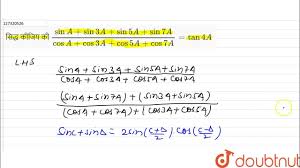 117320526
सिद्ध कीजिय की (sin A + sin 3A + sin 5A + sin 7A)/(cos A + cos 3A + cos 5A + cos 7A) = tan 4A
LHS
(sinA + sin3A + sin5A + sin7A)/(cosA + cos3A + cos5A + cos7A)
((sinA + sin7A) + (sin3A + sin5A))/((cosA + cos7A) + (cos3A + cos5A))
sinC + sinD = 2sin((C+D)/2) cos((C-D)/2)
doubtnut